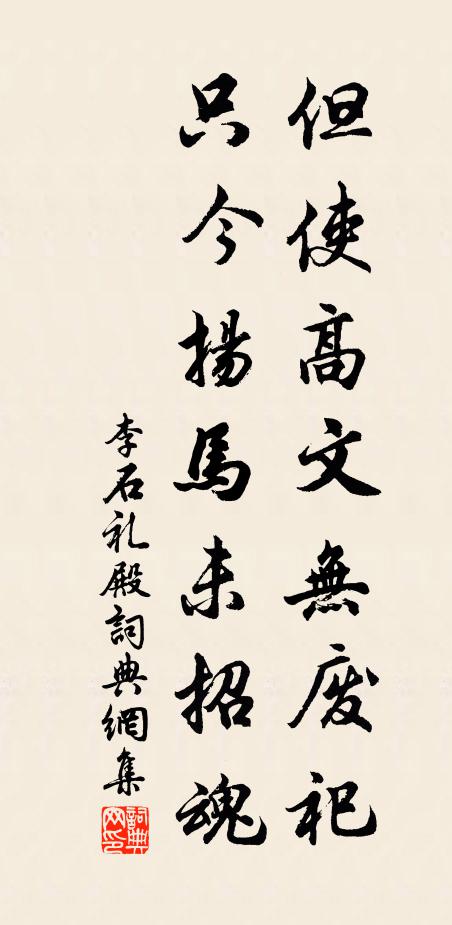 但使高文無廢祀
只今揚馬未招魂
李石礼殿詞典網集
詞典网印